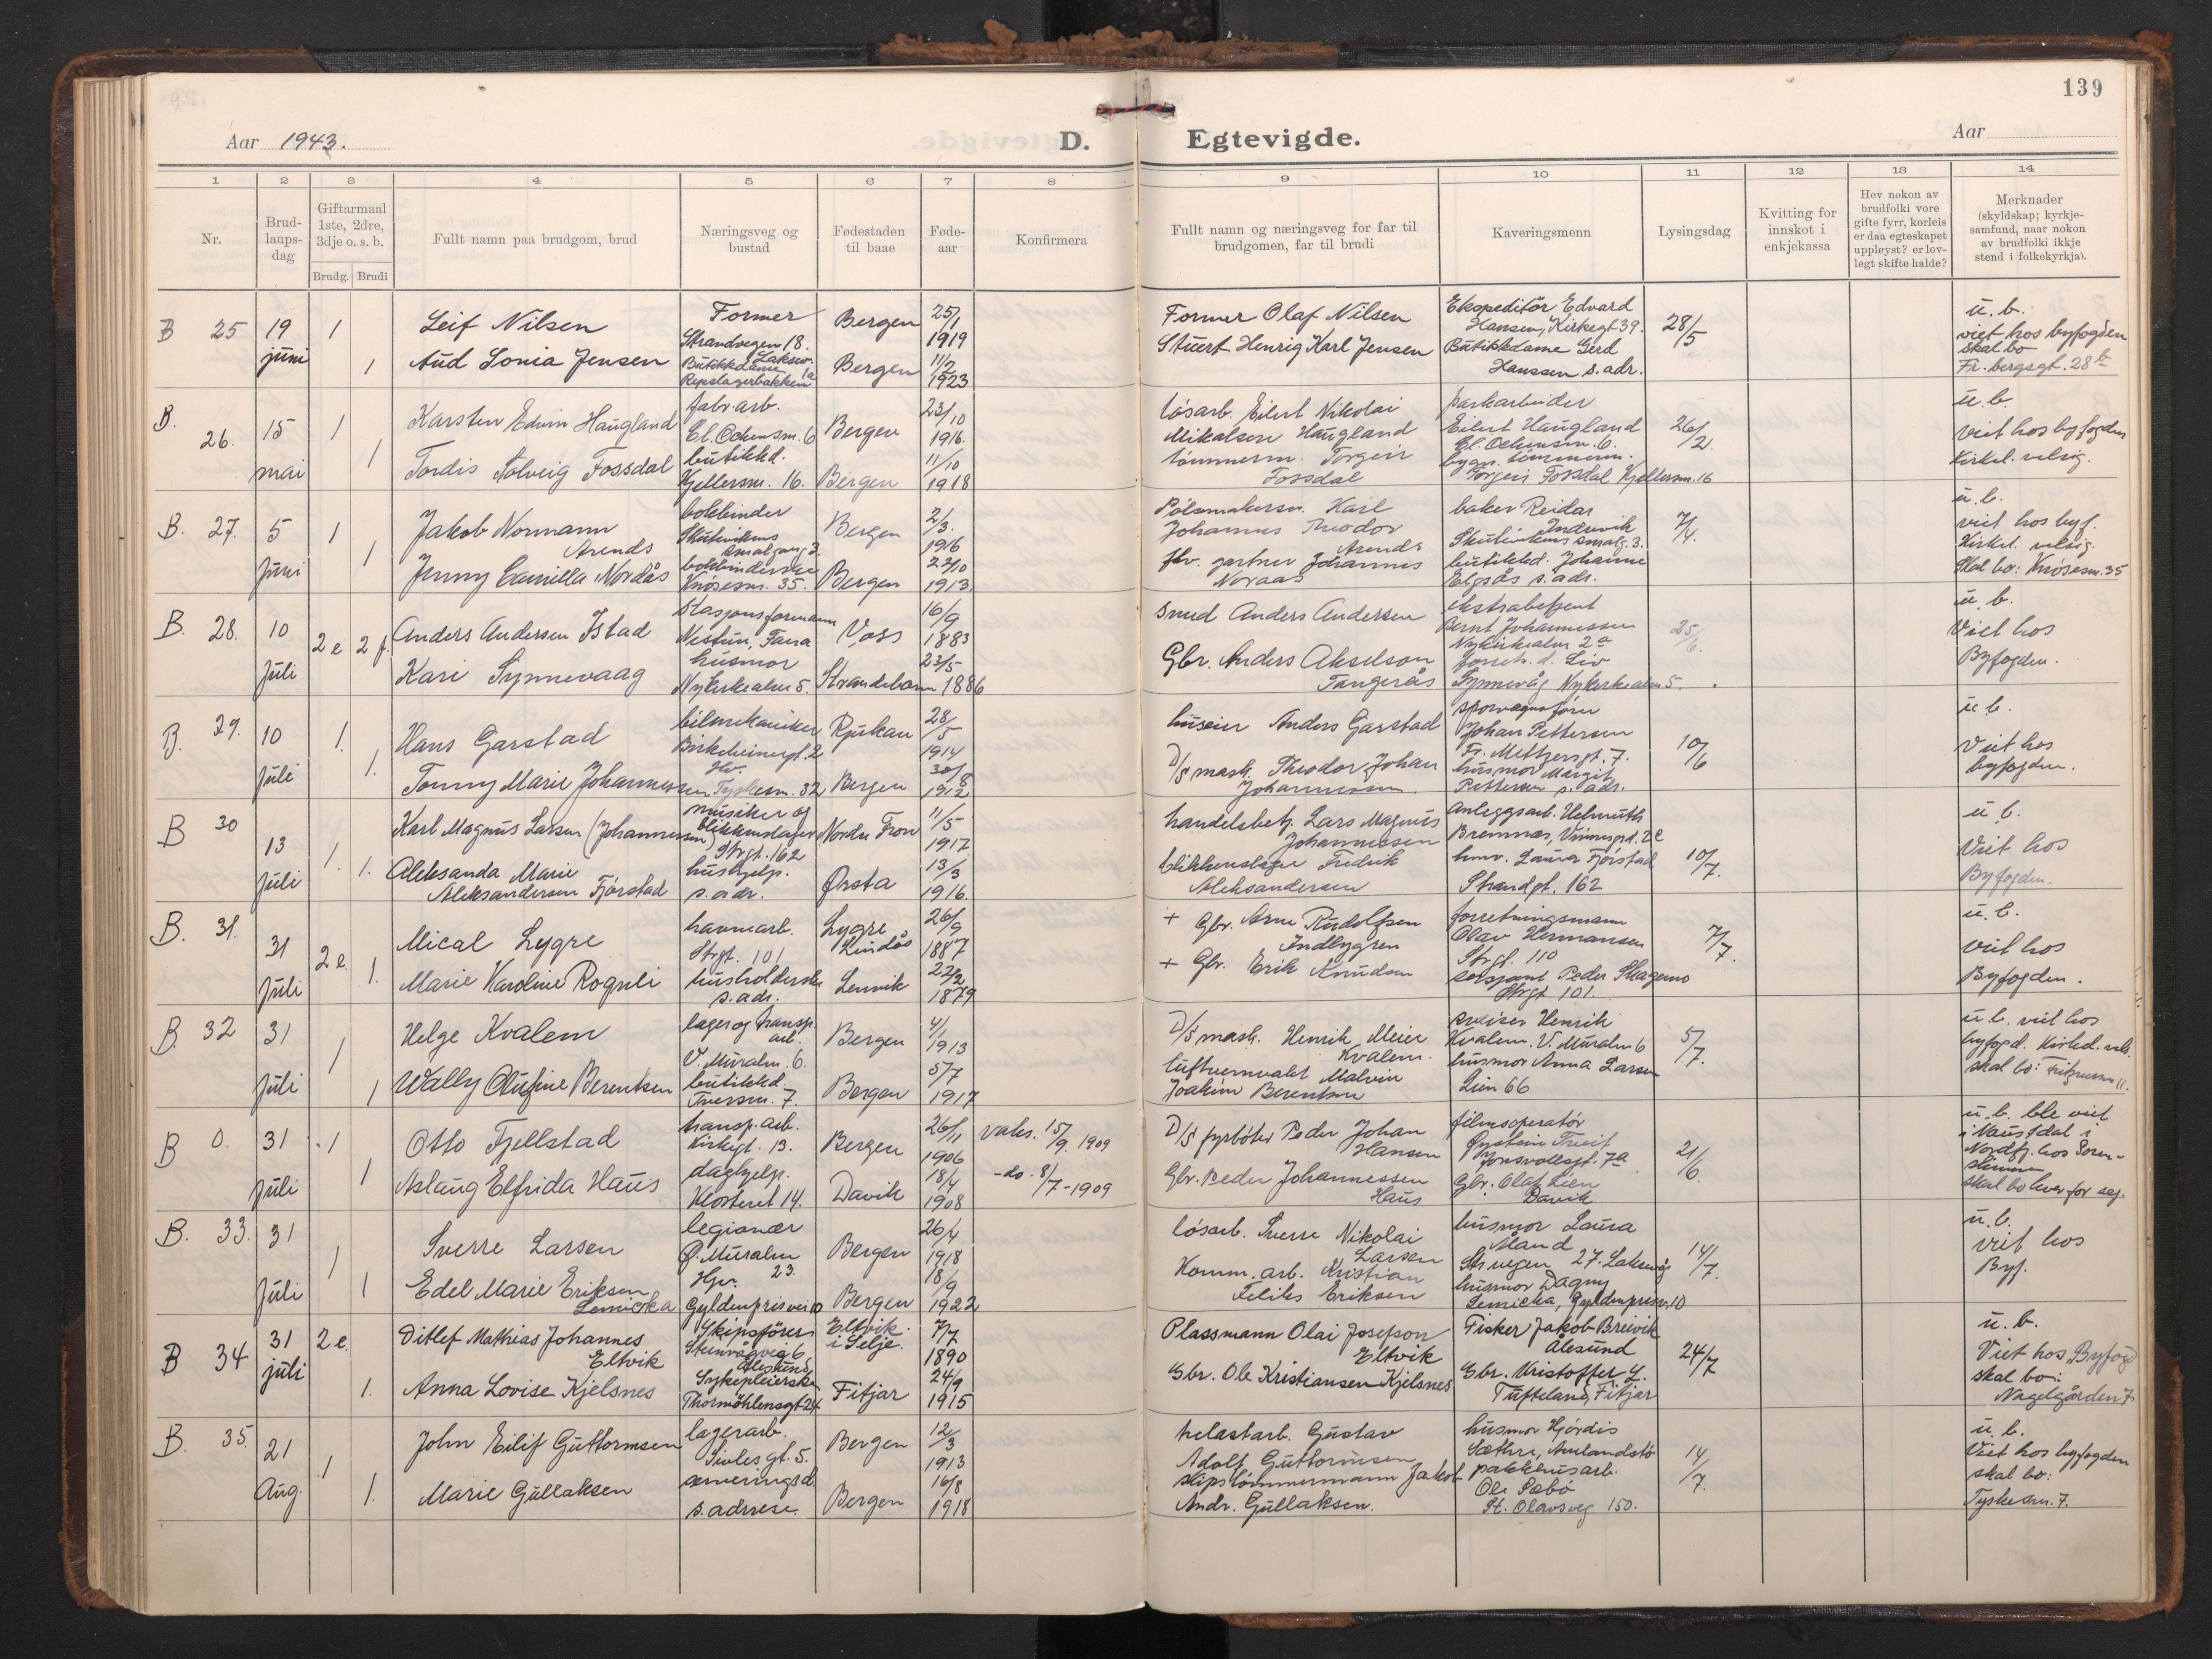 139
Aar 1943.
D. Egtevigde.
Aar
1 2 3 4 5 6 7 8 9 10 11 12 13 14
Nr.
Brud-
laups-
dag
Giftarmaal
1ste, 2dre,
3dje o. s. b.
Brudg. Brudi
Fullt namn paa brudgom, brud
Næringsveg og
bustad
Fødestaden
til baae
Føde-
aar
Konfirmera
Fullt namn og næringsveg for far til
brudgomen, far til brudi
Kaveringsmenn
Lysingsdag
Kvitting for
innskot i
enkjekassa
Hev nokon av
brudfolki vore
gifte fyrr, korleis
er daa egteskapet
uppløyst? er lov-
legt skifte halde?
Merknader
(skyldskap; kyrkje-
samfund, naar nokon
av brudfolki ikkje
stend i folkekyrkja).
B 25 19 juni 1 1
Leif Nilsen
Aud Sonia Jensen
Former
Strandvegen 18.
Laksev.
Butikkdame
Repslagerbakken 1a
Bergen
Bergen
25/1
1919
11/2
1923
Former Olaf Nilsen
Stuert Henrig Karl Jensen
Ekspeditör Edvard
Hansen, Kirkegt 39.
Butikkdame Gerd
Hanssen s. adr.
28/5
u. b.
viet hos byfogden
skal bo
Fr. bergsgt. 28b
B. 26. 15 mai 1 1
Karsten Edvin Haugland
Tordis Solveig Fossdal
fabr arb.
butikkd.
Kjellersm. 16.
Bergen
Bergen
23/10
1916.
11/10
1918
lósarb. Eilert Nikolai
Mikalsen Haugland
tömmerm. Torgeir
Fossdal
parkarbeider
Eilert Haugland
bygn. tömmerm.
Torgeir Fossdal Kjellersm. 16
26/2
u. b.
viet hos byfogden
Kirkel. velsig.
B. 27. 5 Juni 1 1
Jakob Normann
Arends
Jenny Camilla Nordås
bokbinder
Skutevikens
smalgang 3.
bokbinderske
Knösesm. 35.
Bergen
Bergen
2/3.
1916
22/10
1913.
Pölsemakersv. Karl
Johannes Theodor
Arends
fhv. gartner Johannes
Noraas
baker Reidar
Indrevik
Skutevikens smalg. 3.
butikkd. Johanne
Elgsås s. adr.
7/4.
u. b.
viet hos byf.
Kirkel. velsig.
Skal bo: Knösesm. 35
B. 28. 10 Juli 2 e 2 f.
Anders Andersen Istad
Kari Synnevaag
Stasjonsformann
Nestun, Fana
husmor
Nykirkealm 5.
Voss
Strandebarm
16/9
1883
23/5
1886
Smed Anders Andersen
Gbr. Anders Akselson
Tangerås
ekstrabetjent
Bernt Johannessen
Nykirkealm 2a
Liv
Synnevåg Nykirkealm 5.
25/6.
u. b.
Viet hos
Byfogden.
B. 29. 10 Juli 1. 1.
Hans Garstad
Tonny Marie Johannessen
bilmekaniker
Birkebeinergt. 2
Hv.
Tyskesm. 32
Rjukan
Bergen
28/5
1914
30/8
1912
huseier Anders Garstad
D/S mask. Theodor Johan
Johannessen.
sporvognsfören
Johan Pettersen
Fr. Meltzersgt. 7.
husmor Margit
Pettersen s. adr.
10/6
u. b.
Viet hos
byfogden.
B 30 13 Juli 1. 1.
Karl Magnus Larsen (Johannessen)
Aleksanda Marie
Aleksandersen Fjörstad
musiker og
blikkenslager
Strgt. 162
hushjelp.
s. adr.
Nordre Fron
Ørsta
11/5
1917.
13/3
1916.
handelsbetj. Lars Magnus
Johannessen
blikkenslager Fredrik
Aleksandersen
anleggsarb. Helmuth
Bremnes,
Laura Fjörstad
Strandgt. 162
10/7.
u. b.
Viet hos
Byfogden.
B. 31. 31 Juli 2 e. 1.
Mical Lygre
Marie Karoline Rognli
havnearb.
Strgt. 101
husholderske
s. adr.
Lygre
Lenvik
26/9
1887
22/2
1879
+ Gbr. Arne Rudolfsen
Indbygren
+ Gbr. Erik Knudsen
forretningsmann
Olav Hermansen
Strgt. 110
sersjant Peder Skagemo
Strgt 101.
7/7.
u. b.
viet hos
Byfogden.
B. 32 31 Juli 1 1
Helge Kvalem
Wally Olufine Berentsen
lager og transp.
arb.
V. Muralm. 6.
butikkd.
Tversm. 7.
Bergen
Bergen
4/1
1913
5/7
1917
D/S mask. Henrik Meier
Kvalem.
luftvernvakt Malvin
Joakim Berentsen
sveiser Henrik
Kvalem. V. Muralm 6
husmor Anna Larsen
Lien 66
5/7.
u. b. viet hos
byfogd. Kirkel. vels.
skal bo:
B 0. 31 Juli 1 1
Otto Fjellstad
Aslaug Elfrida Haus
transp. arb.
Kirkegt. 13.
daghjelp.
Klosteret 14.
Bergen
Davik
26/11
1906
18/4
1908
vaks. 15/9. 1909
- do. 8/7 - 1909
D/S fyrböter Peder Johan
Hansen
Gbr. Peder Johannessen
Haus
filmoperatör
Øystein
Jonsvollsgt. 7a
Gbr. Olaf Lien
Davik
21/6.
u. b. ble viet
i Naustdal i
Nordfj. hos Soren-
skriveren
skal bo hver for seg.
B. 33. 31 Juli 1 1
Sverre Larsen
Edel Marie Eriksen
Lemicka
legionær
Ø. Muralm
23.
Hpr.
Gyldenprisvei 10
Bergen
Bergen
26/4
1918
18/9
1922
lósarb. Sverre Nikolai
Larsen
Komm. arb. Kristian
Feliks Eriksen
husmor Laura
Åland
Strvegen 27. Laksevåg
husmor Dagny
Lemicka, Gyldenprisv. 10
14/7.
u. b.
viet hos
Byf.
B 34 31 juli 2 e. 1.
Ditlef Mathias Johannes
Eltvik
Anna Lovise Kjelsnes
Skipsförer
Steinvågveg 6
Ålesund
Sykepleierske
Thormöhlensgt 24
Eltvik
i Selje.
Fitjar
7/7
1890
24/9
1915
Plassmann Olai Josefson
Eltvik
Gbr. Ole Kristiansen Kjelsnes
Fisker Jakob Breivik
Ålesund
Gbr. Kristoffer L.
Tufteland, Fitjar
24/7
u. b.
Viet hos Byfogd
skal bo:
Nagelgården 7
B. 35. 21 Aug. 1 1.
John Eilif Guttormsen
Marie Gullaksen
lagerarb.
Sivlesgt. 5.
serveringsd.
s. adresse.
Bergen
Bergen
12/3
1913
16/8
1918
helsearb. Gustav
Adolf Guttormsen
skipstömmermann Jakob
Andr. Gullaksen.
husmor Hjördis
Sæthre,
pakkhusarb.
Ole Sæbö
St. Olavsveg 150.
14/7.
u. b.
Viet hos byfogden
skal bo:
Tyskesm. 7.